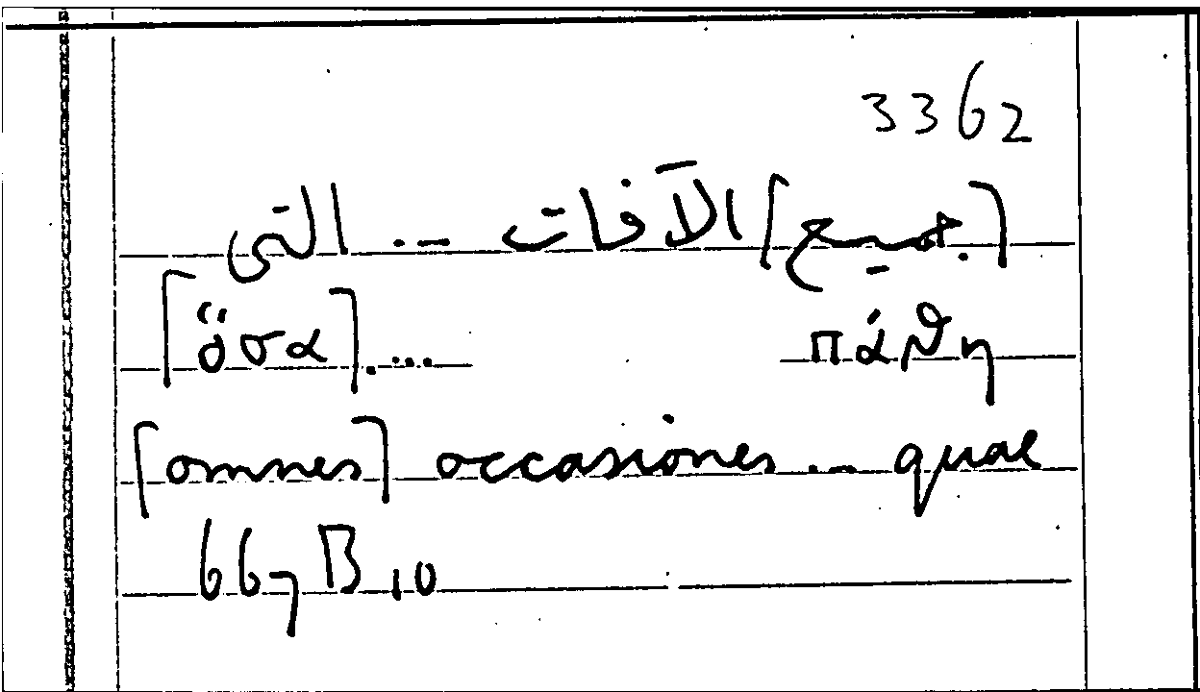 3362
[جميع] الآفات ... التى
[ὅσα] ... πάθη
[omnes] occasiones ... quae
667B10